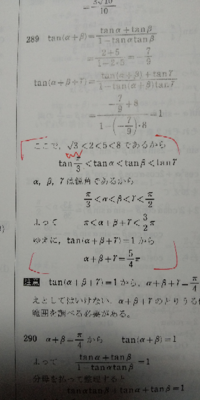 -3√10
10
289 tan(α+β)= tanα+tanβ / 1-tanαtanβ
= 2+5 / 1-2·5 = -7/9
tan(α+β+γ)= tan(α+β)+tanγ / 1-tan(α+β)tanγ
= -7/9+8 / 1-(-7/9)·8 =1
ここで，√3<2<5<8 であるから
tan π/3 <tanα<tanβ<tanγ
α，β，γ は鋭角であるから
π/3<α<β<γ<π/2
よって π<α+β+γ<3/2π
ゆえに，tan(α+β+γ)=1 から
α+β+γ=5/4π
注意 tan(α+β+γ)=1 から，α+β+γ=π/4
えとしてはいけない．α+β+γ のとりうる
範囲を調べる必要がある．
299 α+β=π/4 から tan(α+β)=1
よって tanα+tanβ / 1-tanαtanβ =1
分母を払って整理すると
tanαtanβ+tanα+tanβ=1